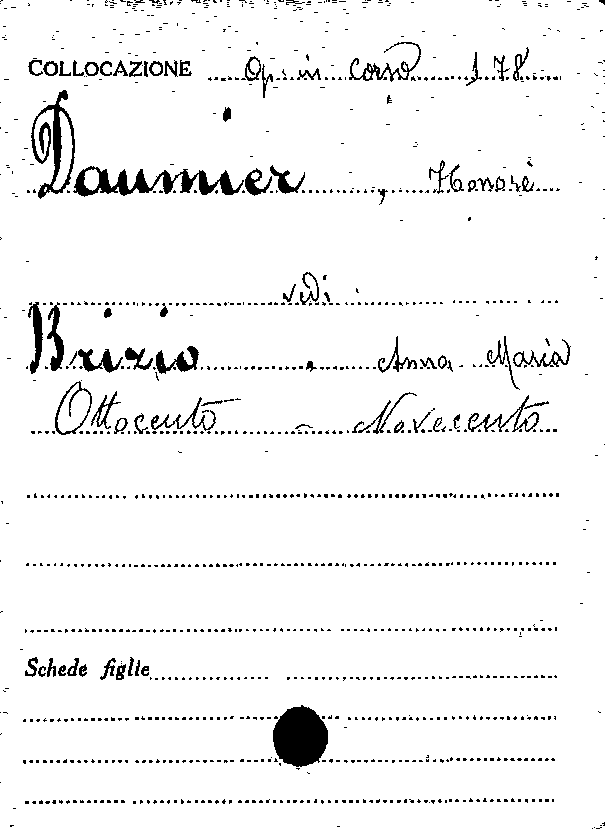 COLLOCAZIONE Op. in Corso 178
Daumier, Honoré
vedi:
Brizio, Anna Maria
Ottocento - Novecento
Schede figlie